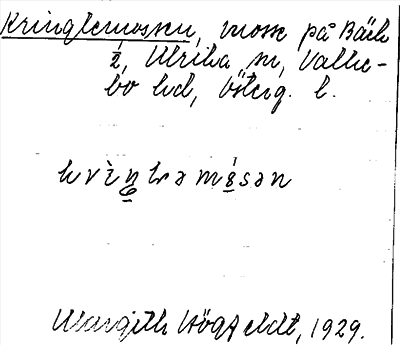 Kringlemossen, mosse på Bäck
1/2, Ulrika sn, Valke-
bo hd, Österg. l.
Margith Högfeldt, 1929.